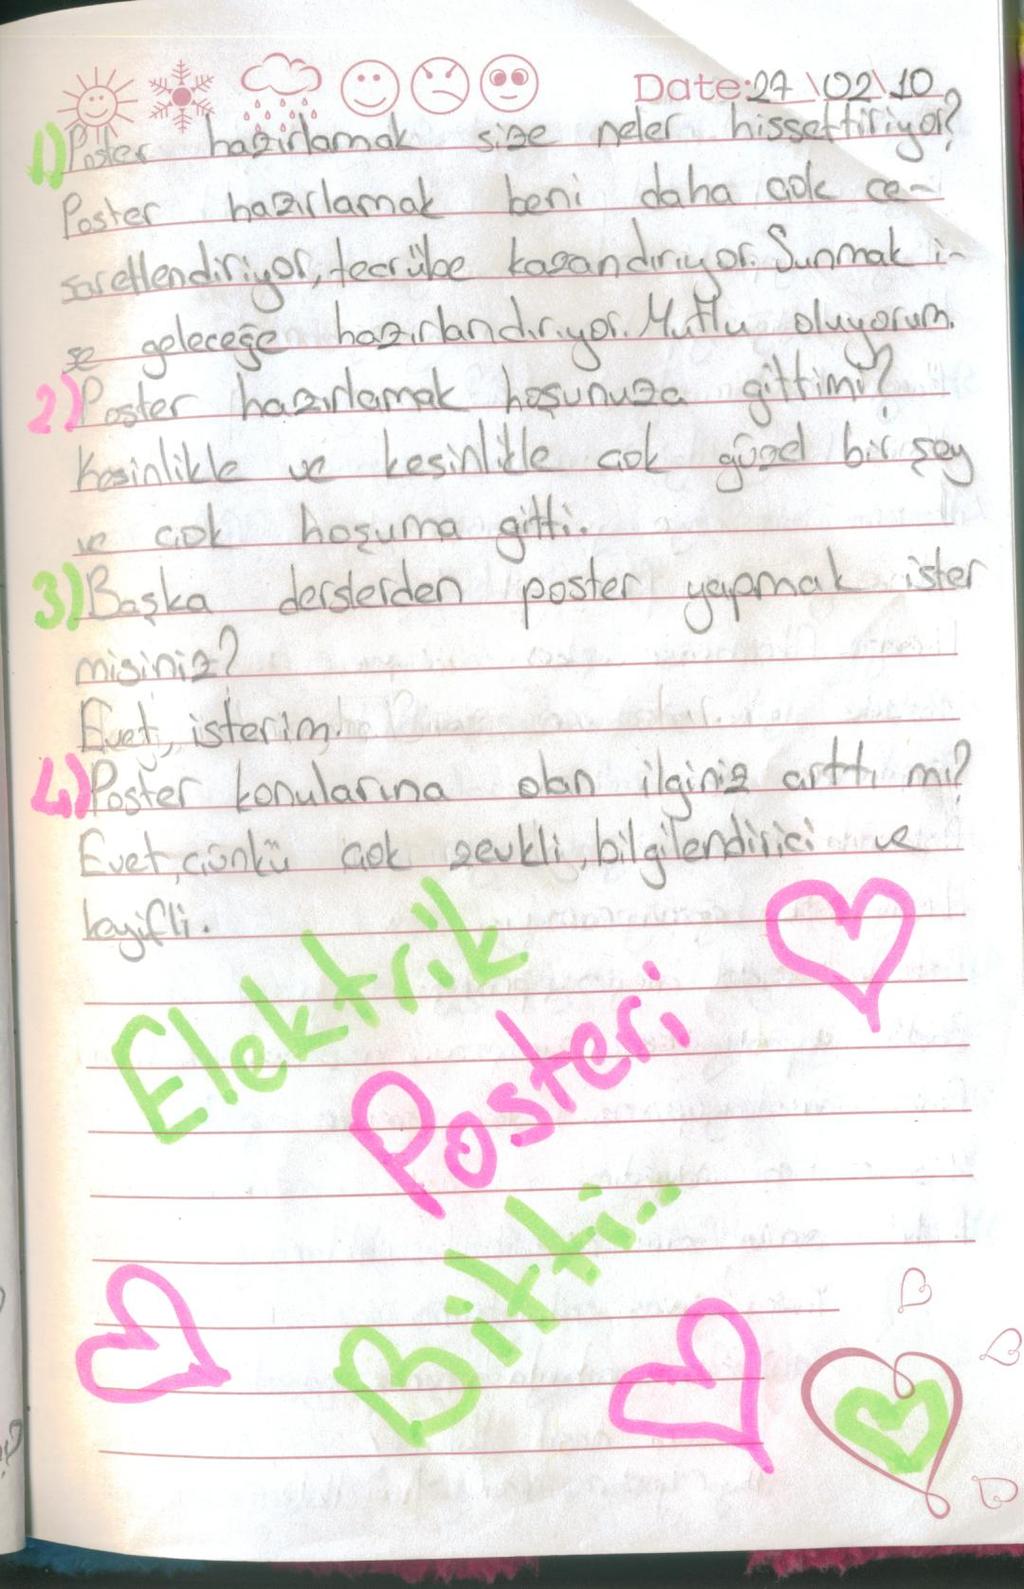 Date: 27\02\10
1) Poster hazırlamak size neler hissettiriyor?
Poster hazırlamak beni daha çok ce-
saretlendiriyor, tecrübe kazandırıyor. Sunmak i-
se geleceğe hazırlandırıyor. Mutlu oluyorum.
2) Poster hazırlamak hoşunuza gittimi?
Kesinlikle ve kesinlikle çok güzel bir şey
ve çok hoşuma gitti.
3) Başka derslerden poster yapmak ister
misiniz?
Evet, isterim.
4) Poster konularına olan ilginiz arttı mı?
Evet, çünkü çok zevkli, bilgilendirici ve
keyifli.
Elektrik
Posteri
Bitti...